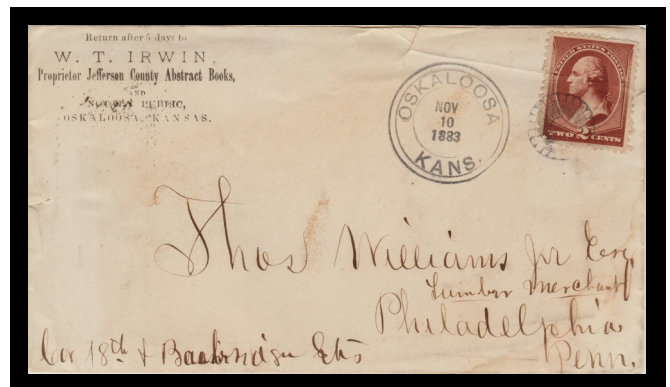 Return after 5 days to
W. T. IRWIN,
Proprietor Jefferson County Abstract Books,
AND
NOTARY PUBLIC,
OSKALOOSA, KANSAS.
OSKALOOSA
NOV
10
1883
KANS.
UNITED STATES POSTAGE
TWO 2 CENTS
Thos Williams Jr Esq.
Lumber Merchant
Philadelphia
Penn.
Cor 18th & Bainbridge Sts